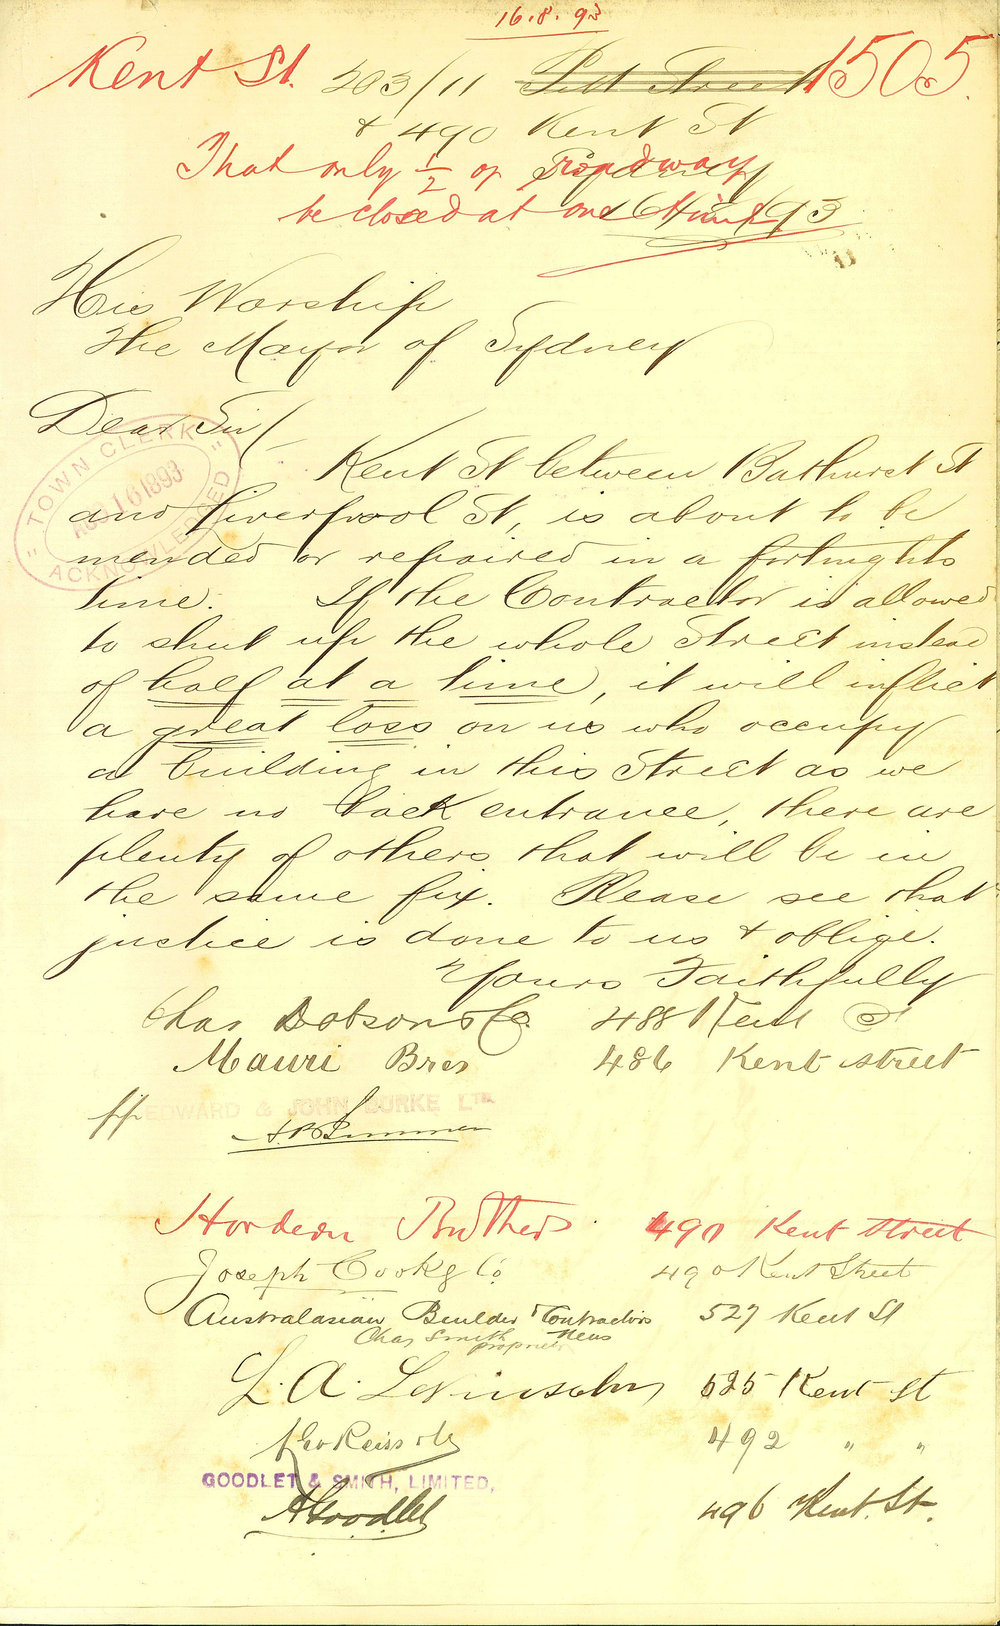 16.8.93
Kent St. 203/11 Pitt Street 1505.
& 490 Kent St
That only 1/2 of roadway
Sydney
be closed at one time
93
His Worship
The Mayor of Sydney
Dear Sir
TOWN CLERK
AUG 16 1893
ACKNOWLEDGED
Kent St between Bathurst St
and Liverpool St, is about to be
mended or repaired in a fortnights
time. If the Contractor is allowed
to shut up the whole Street instead
of half at a time, it will inflict
a great loss on us who occupy
a building in this Street as we
have no back entrance, there are
plenty of others that will be in
the same fix. Please see that
justice is done to us & oblige.
Yours Faithfully
Chas Dobson & Co. 488 Kent St
Mauri Bros 486 Kent street
pp EDWARD & JOHN BURKE LTD
Hordern Brothers 490 Kent Street
Joseph Cook & Co 490 Kent Street
Australasian Builder & Contractors 527 Kent St
News
Chas Smith
proprietor
L. A. Levinsohn 525 Kent St
492 " "
GOODLET & SMITH, LIMITED,
A Goodlet 496 Kent. St.